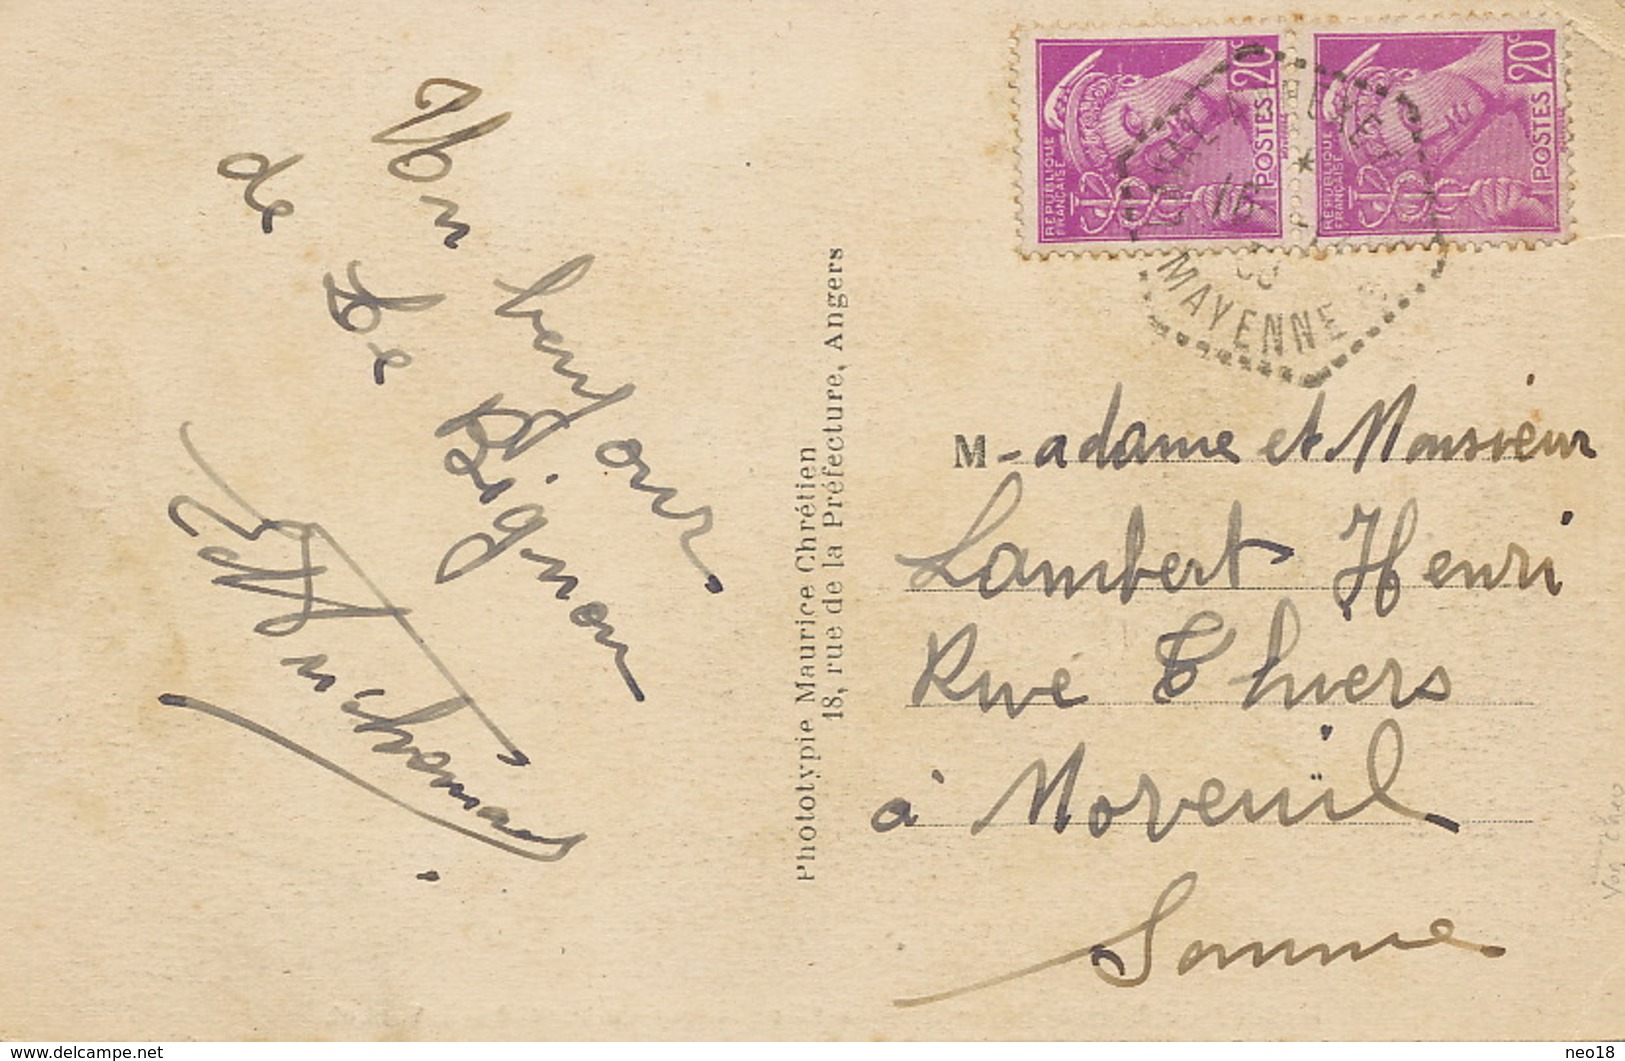 Mon bonjour
de Le Bignon
Phototypie Maurice Chrétien
18, rue de la Préfecture, Angers
REPUBLIQUE
FRANCAISE
POSTES 20c
REPUBLIQUE
FRANCAISE
POSTES 20c
16
MAYENNE
M-adame et Monsieur
Lambert Henri
Rue Thiers
à Moreuil
Somme
delcampe.net
neo18